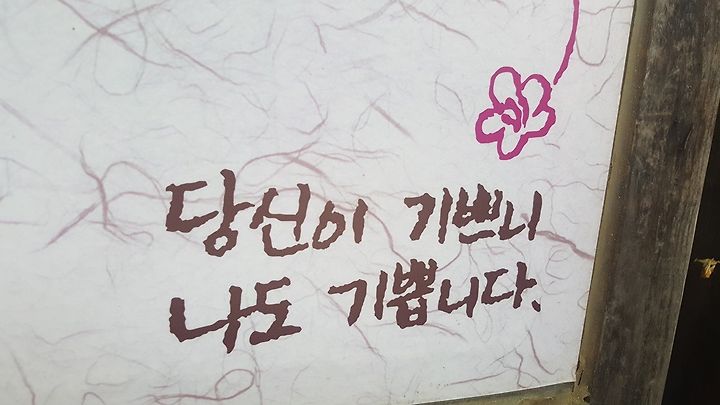 당신이 기쁘니
나도 기쁩니다.